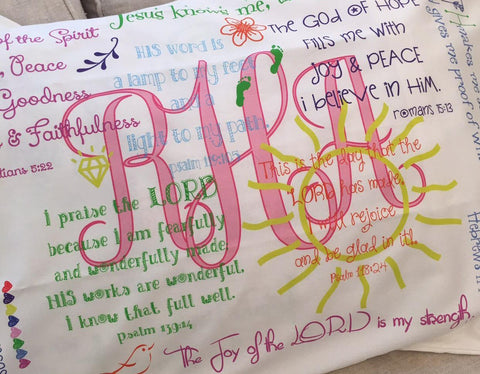 Jesus knows me,
of the Spirit
Peace
Goodness
& Faithfulness
5:22
HIS WORD is
a lamp to my feet
and a
light to my path.
psalm
The GOD of HOPE
fills me with
JOY & PEACE
i believe in Him.
romans 5:13
i praise the LORD
because i am fearfully
and wonderfully made;
HIS works are wonderful.
i know that full well.
Psalm 139:14
This is the day that the
LORD has made.
i will rejoice
and be glad in it!
Psalm 118:24
The Joy of the LORD is my strength.
makes me
gives me Proof of
Hebrews